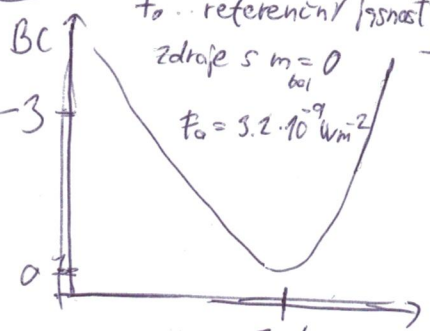 F₀ .. referenční jasnost
BC
zdroje s m_bol = 0
-3
F₀ = 3.2·10⁻⁹ Wm⁻²
0